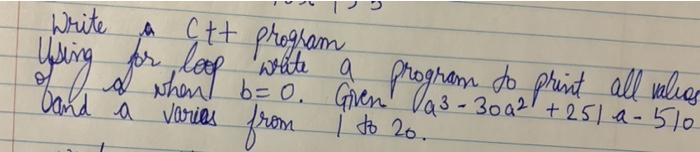 Write a C++ program
Using for loop write a program to print all values
of a when b=0. Given a³-30a²+251a-510
and a varies from 1 to 20.